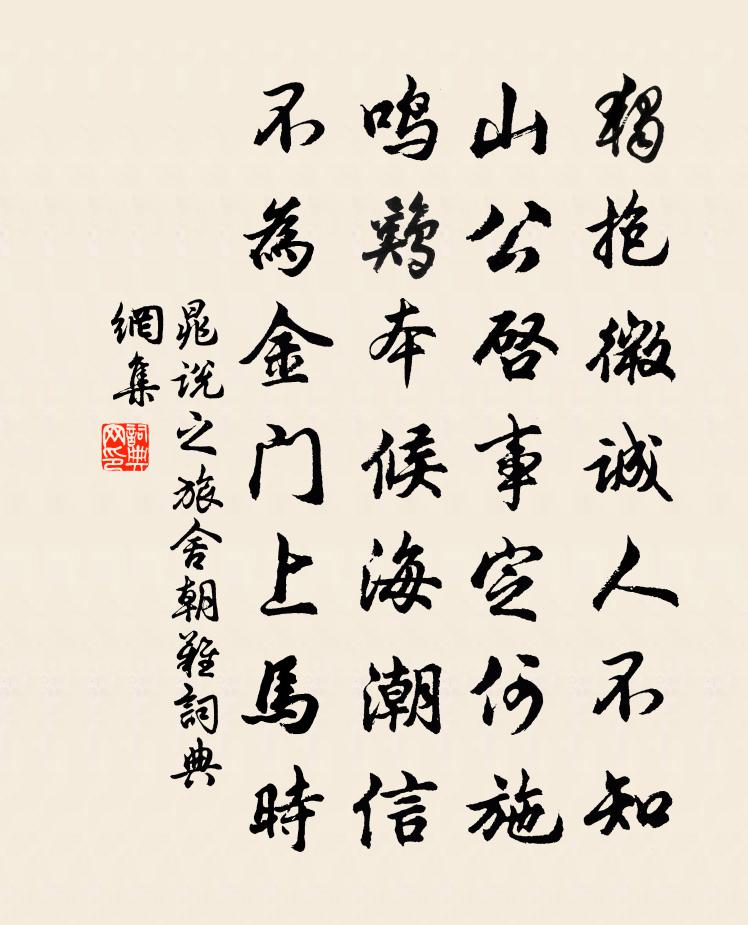 獨抱微誠人不知
山公啓事定何施
鳴鷄本候海潮信
不為金門上馬時
晁說之旅舍朝難詞典
網集
詞典
网印